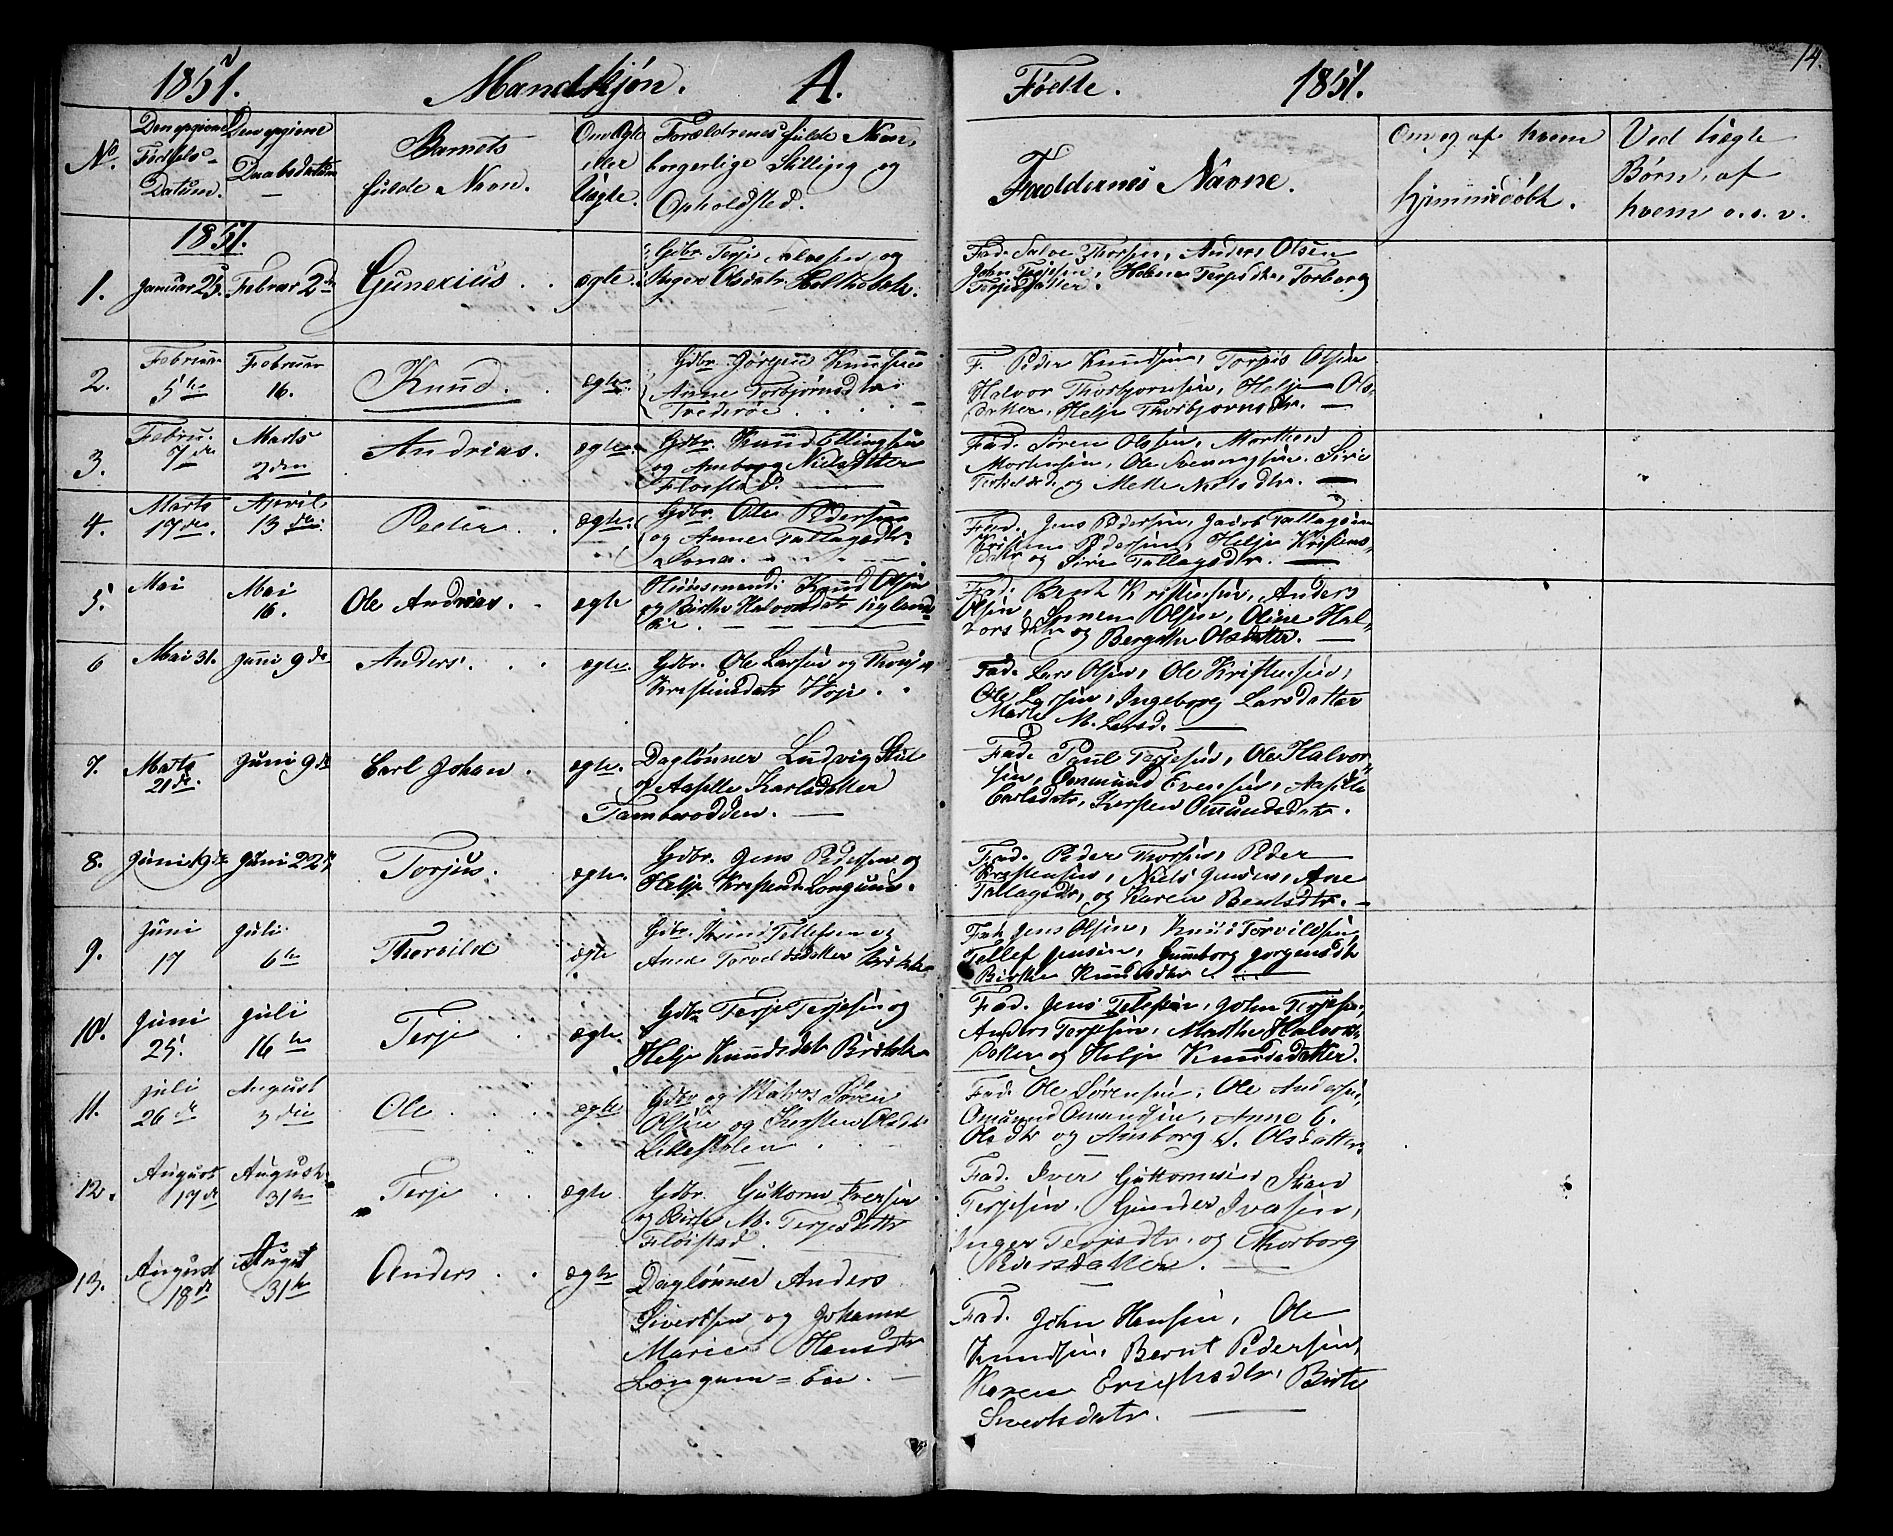 14.
1851. Mandkjøn. A. Fødte. 1851.
No.
Den opgivne Fødsels-Datum.
Den opgivne Daabsdatum
Barnets fulde Navn.
Om Ægte eller Uægte.
Forældrenes fulde Navn, borgerlige Stilling og Opholdsted.
Faddernes Navne.
Om og af hvem hjemmedøbt.
Ved Uægte Børn, af hvem o.s.v.
1851.
1. Januar 25. Februar 2den Gunerius. ægte.
Gdbr. Terje Salvesen og
Inger Olsdatr.
Fad. Salve Thorsen, Anders Olsen
John Terjesen, Helene Terjesdtr, Torborg
Terjesdatter.
2. Februar 5te Februar 16. Knud. ægte.
Gdbr. Jørgen Knudsen
Anne Torbjørnsdtr
Trederøe
F. Peder Knudsen, Torjus Olsen
Halvor Thorbjørnsen, Helje Ols-
datter, Helje Thorbjørnsdtr.
3. Febru. 7de Marts 2den Andrias. ægte.
Gdbr. Knud Ellingsen
og Amborg Nielsdatter
Floistad.
Fad. Søren Olsen, Morthen
Mortensen, Ole Svenungsen, Siri
og Mette Nielsdtr.
4. Marts 17de. April 13de. Peder. ægte.
Gdbr. Ole Pedersen
og Anne Tallagsdtr.
Fad. Jens Pedersen, Jacob Tallagsen
Kristen Pedersen, Helje Kristens-
datr og Siri Tallagsdtr.
5. Mai Mai 16. Ole Andrias. ægte
Huusmand: Knud Olsen
og Birthe Halvorsdatr
Fad. Bernt Kristensen, Anders
Olsen, Olsen, Oline Hal-
vorsdatr og Bergithe Olsdatter.
6 Mai 31. Juni 9de Anders. ægte.
Gdbr. Ole Larsen og
Kristensdatr Hope.
Fad. Lars Olsen, Ole Kristensen,
Ole Larsen, Ingeborg Larsdatter
Marte M. Larsd.
7. Marts 21de. Juni 9de Carl Johan. ægte.
Daglønner Ludvig
og Aaselle Karlsdatter
Tamberodden.
Fad. Paul Terjesen, Ole Halvor-
sen, Ommund Evensen, Aaselle
Carlsdatr, Kersten Omundsdatr.
8. Juni 19de Juni 22de Torjus. ægte.
Gdbr. Jens Pedersen og
Helje Kristensd. Longum.
Fad. Peder Thorsen, Peder
Kristensen, Niels Jensen, Ane
Tallagsdtr, og Karen Berntsdtr.
9. Juni 17 Juli 6te Thorvild ægte
Gdbr. Knud Tellefsen og
Anne Torvildsdatter
Fad. Jens Olsen, Knud Torvildsen,
Tellef Jensen, Gumborg Jørgensdtr
Birthe Knudsdtr.
10. Juni 25. Juli 16te Terje ægte.
Gdbr. Terje Terjesen og
Helje Knudsdat
Fad. Jens John Terjesen,
Anders Terjesen, Marthe Halvors-
datter og Helje Knudsdatter.
11. Juli 26de August 3die Ole ægte.
Gdbr og Matros Søren
Olsen og Kersten Olsdtr
Fad. Ole Sørensen, Ole Andersen,
Omund Omundsen, Anne G.
Olsdtr og Amborg Olsdatter.
12. August 17de August 31te Terje ægte.
Gdbr. Guttorm Iversen
og Birte M. Terjesdatr
Fløistad.
Fad. Iver Guttormsen
Terjesen, Gunder Ivarsen,
Inger Terjesdtr, og Thorborg
Pedersdatter.
13. August 18de August 31te Anders ægte
Daglønner Anders
Sivertsen og Johanne
Marie Hansdtr
Longum-Eie.
Fad. John Hansen, Ole
Knudsen, Bernt Pedersen,
Karen Erichsdtr, Birte
Sivertsdatr.